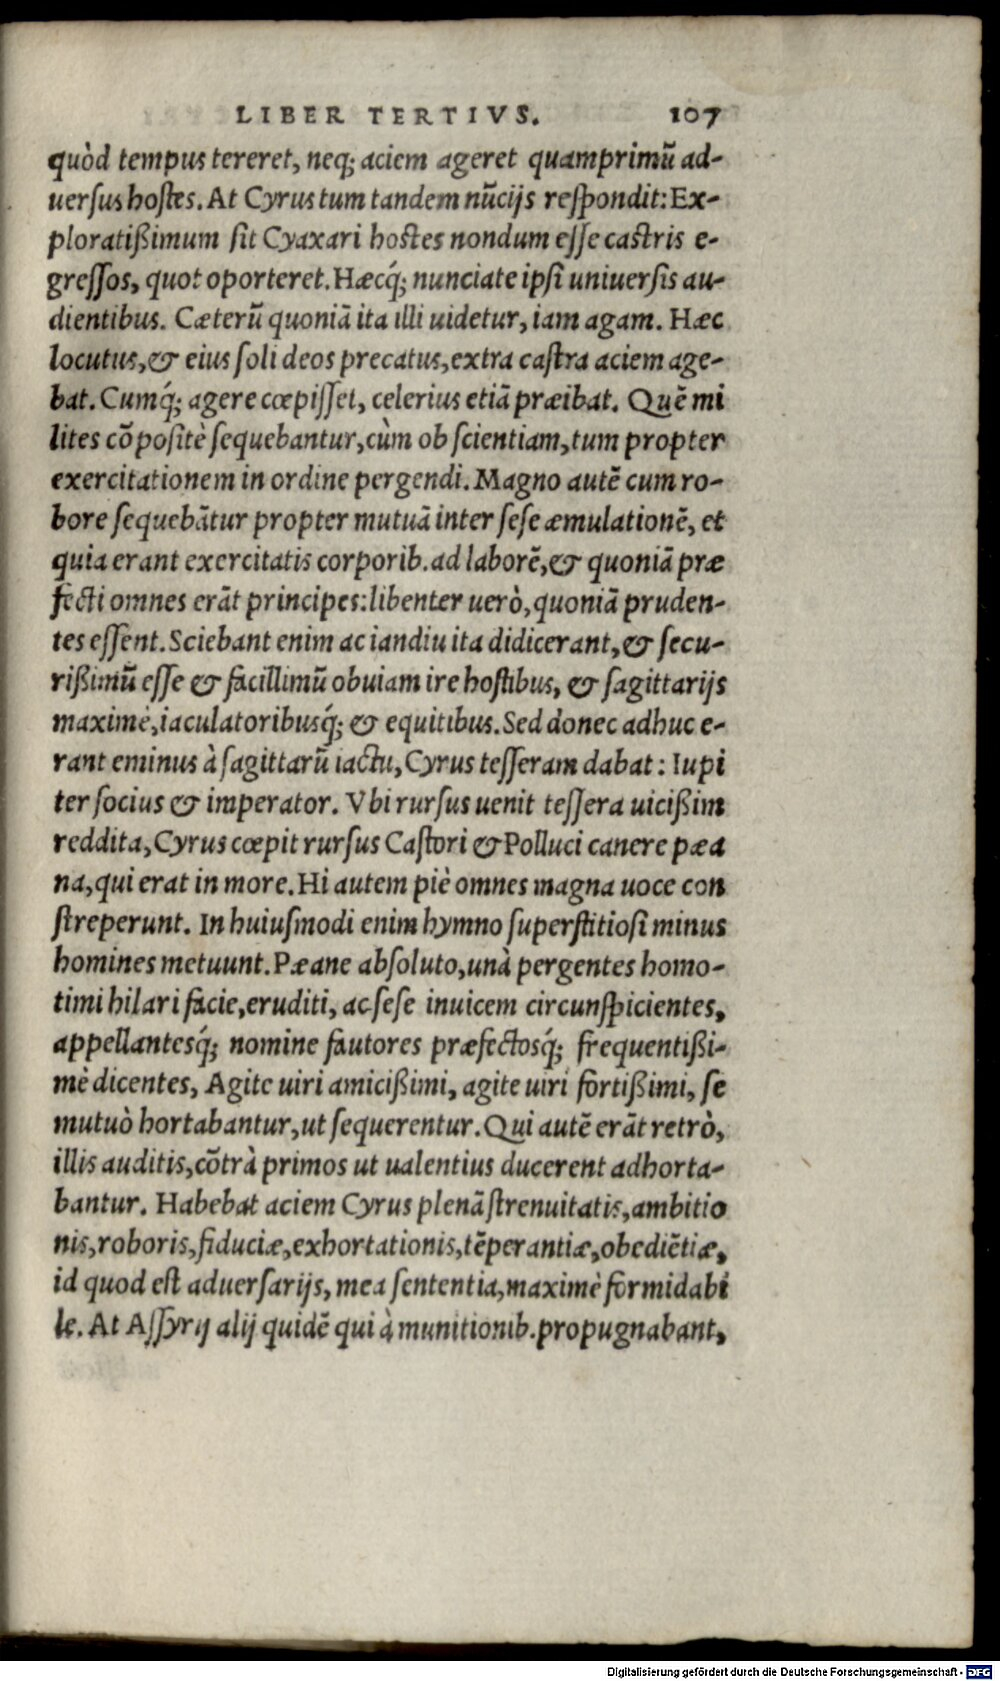 LIBER TERTIVS. 107
quòd tempus tereret, neq; aciem ageret quamprimũ ad-
uersus hostes. At Cyrus tum tandem nũcijs respondit: Ex-
ploratißimum sit Cyaxari hostes nondum esse castris e-
gressos, quot oporteret. Hæcq́; nunciate ipsi uniuersis au-
dientibus. Cæterũ quoniã ita illi uidetur, iam agam. Hæc
locutus, & eius soli deos precatus, extra castra aciem age-
bat. Cumq́; agere cœpisset, celerius etiã præibat. Quẽ mi
lites cõpositè sequebantur, cùm ob scientiam, tum propter
exercitationem in ordine pergendi. Magno autẽ cum ro-
bore sequebãtur propter mutuã inter sese æmulationẽ, et
quia erant exercitatis corporib. ad laborẽ, & quoniã præ
fecti omnes erãt principes: libenter uerò, quoniã pruden-
tes essent. Sciebant enim ac iandiu ita didicerant, & secu-
rißimũ esse & facillimũ obuiam ire hostibus, & sagittarijs
maximè, iaculatoribusq́; & equitibus. Sed donec adhuc e-
rant eminus à sagittarũ iactu, Cyrus tesseram dabat: Iupi
ter socius & imperator. Vbi rursus uenit tessera uicißim
reddita, Cyrus cœpit rursus Castori & Polluci canere pæa
na, qui erat in more. Hi autem piè omnes magna uoce con
streperunt. In huiusmodi enim hymno superstitiosi minus
homines metuunt. Pæane absoluto, unà pergentes homo-
timi hilari facie, eruditi, ac sese inuicem circunspicientes,
appellantesq́; nomine fautores præfectosq́; frequentißi-
mè dicentes, Agite uiri amicißimi, agite uiri fortißimi, se
mutuò hortabantur, ut sequerentur. Qui autẽ erãt retrò,
illis auditis, cõtrà primos ut ualentius ducerent adhorta-
bantur. Habebat aciem Cyrus plenã strenuitatis, ambitio
nis, roboris, fiduciæ, exhortationis, tẽperantiæ, obediẽtiæ,
id quod est aduersarijs, mea sententia, maximè formidabi
le. At Assyrij alij quidẽ qui à munitionib. propugnabant,
Digitalisierung gefördert durch die Deutsche Forschungsgemeinschaft - DFG